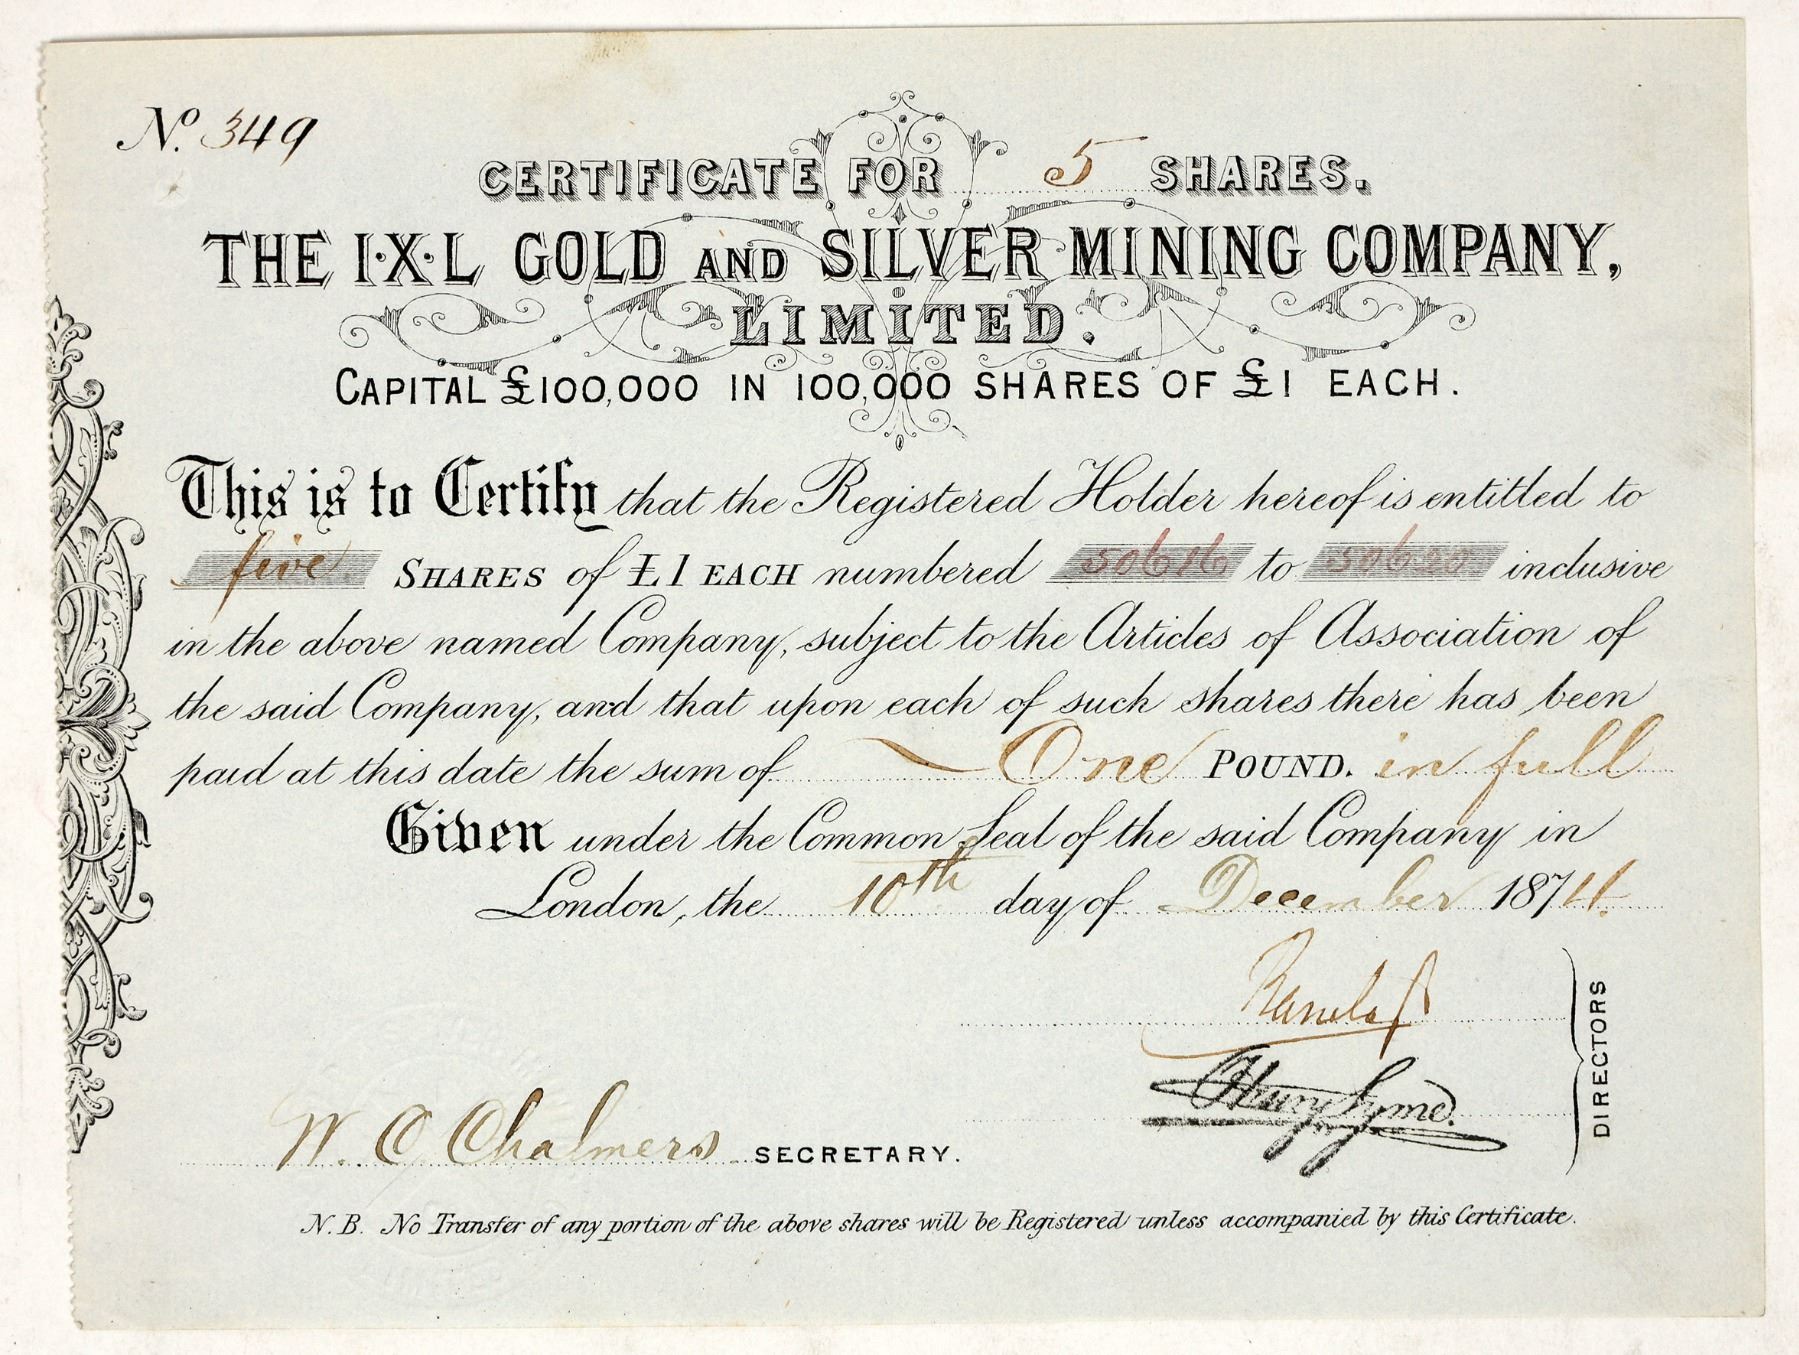 No. 349
CERTIFICATE FOR 5 SHARES.
THE I·X·L GOLD AND SILVER MINING COMPANY,
LIMITED.
CAPITAL £100,000 IN 100,000 SHARES OF £1 EACH.
This is to Certify that the Registered Holder hereof is entitled to
five SHARES of £1 EACH numbered 50616 to 50620 inclusive
in the above named Company, subject to the Articles of Association of
the said Company, and that upon each of such shares there has been
paid at this date the sum of One POUND. in full
Given under the Common Seal of the said Company in
London, the 10th day of December 1874.
Henry Syme.
DIRECTORS
W. O. Chalmers SECRETARY.
N.B. No Transfer of any portion of the above shares will be Registered unless accompanied by this Certificate.